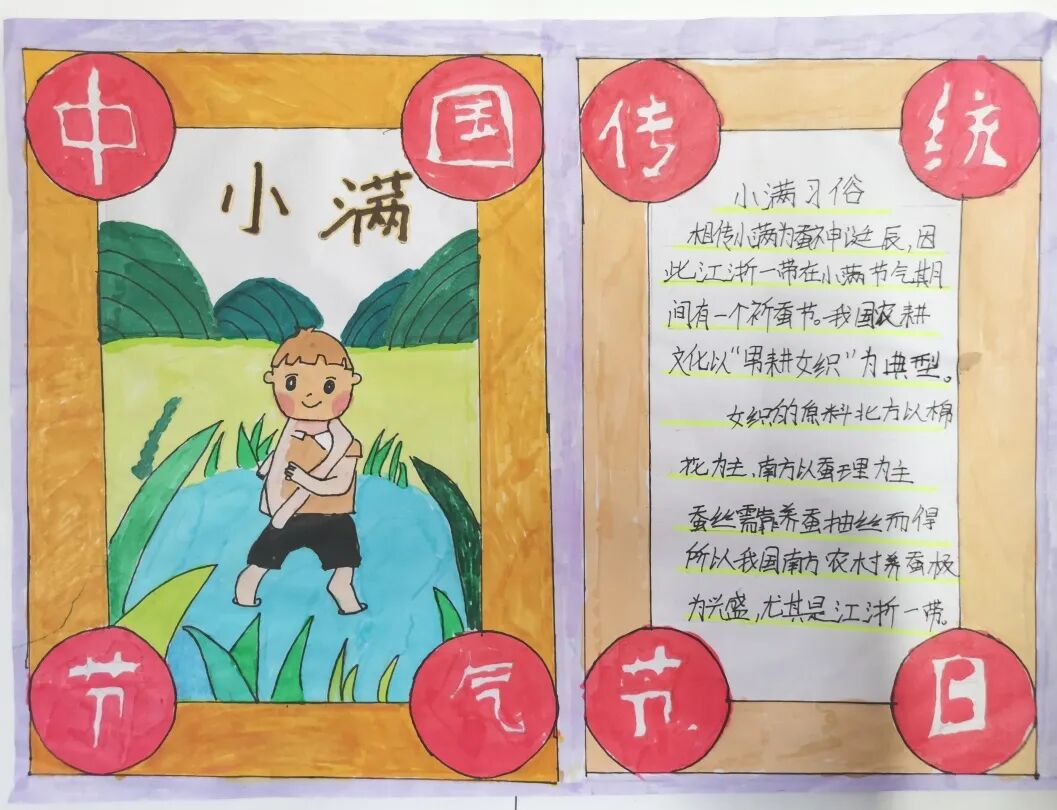 中国
小满
节气
传统
小满习俗
相传小满为蚕神诞辰,因
此江浙一带在小满节气期
间有一个祈蚕节。我国农耕
文化以“男耕女织”为典型。
女织的原料北方以棉
花为主,南方以蚕理为主
蚕丝需靠养蚕抽丝而得
所以我国南方农村养蚕极
为兴盛,尤其是江浙一带。
节日